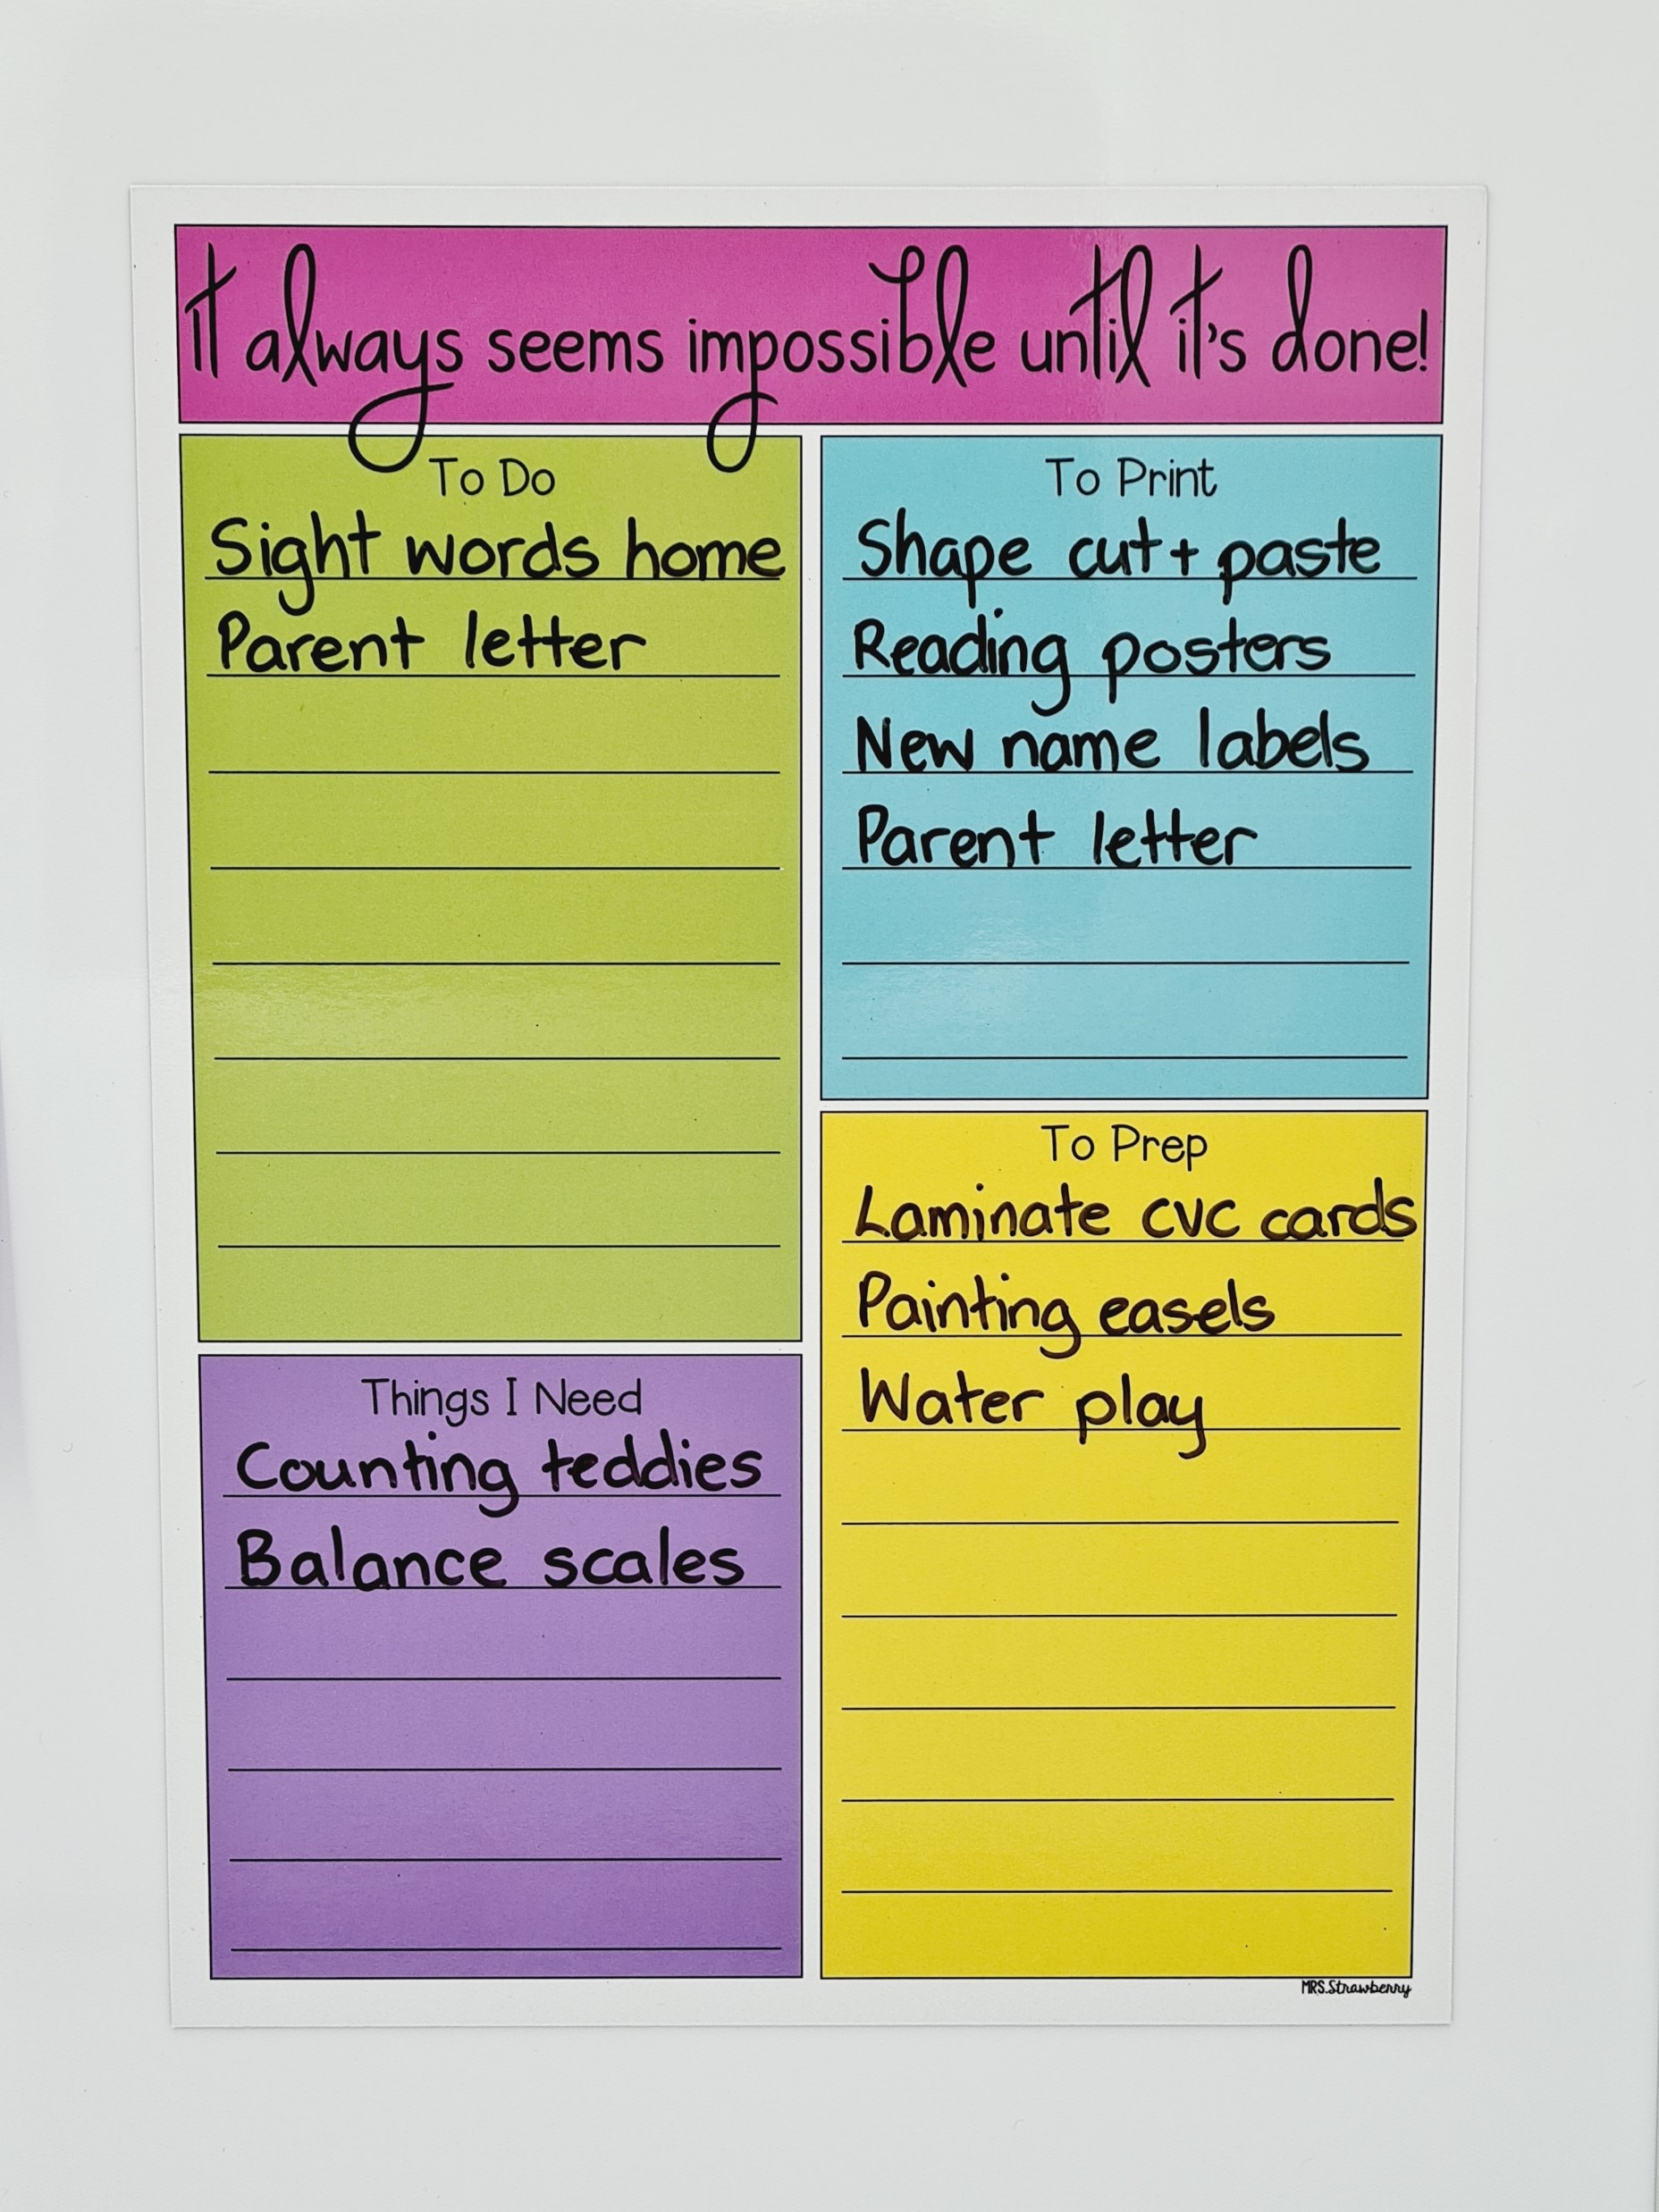 It always seems impossible until it's done!
To Do
Sight words home
Parent letter
Things I Need
Counting teddies
Balance scales
To Print
Shape cut + paste
Reading posters
New name labels
Parent letter
To Prep
Laminate cvc cards
Painting easels
Water play
MRS.Strawberry